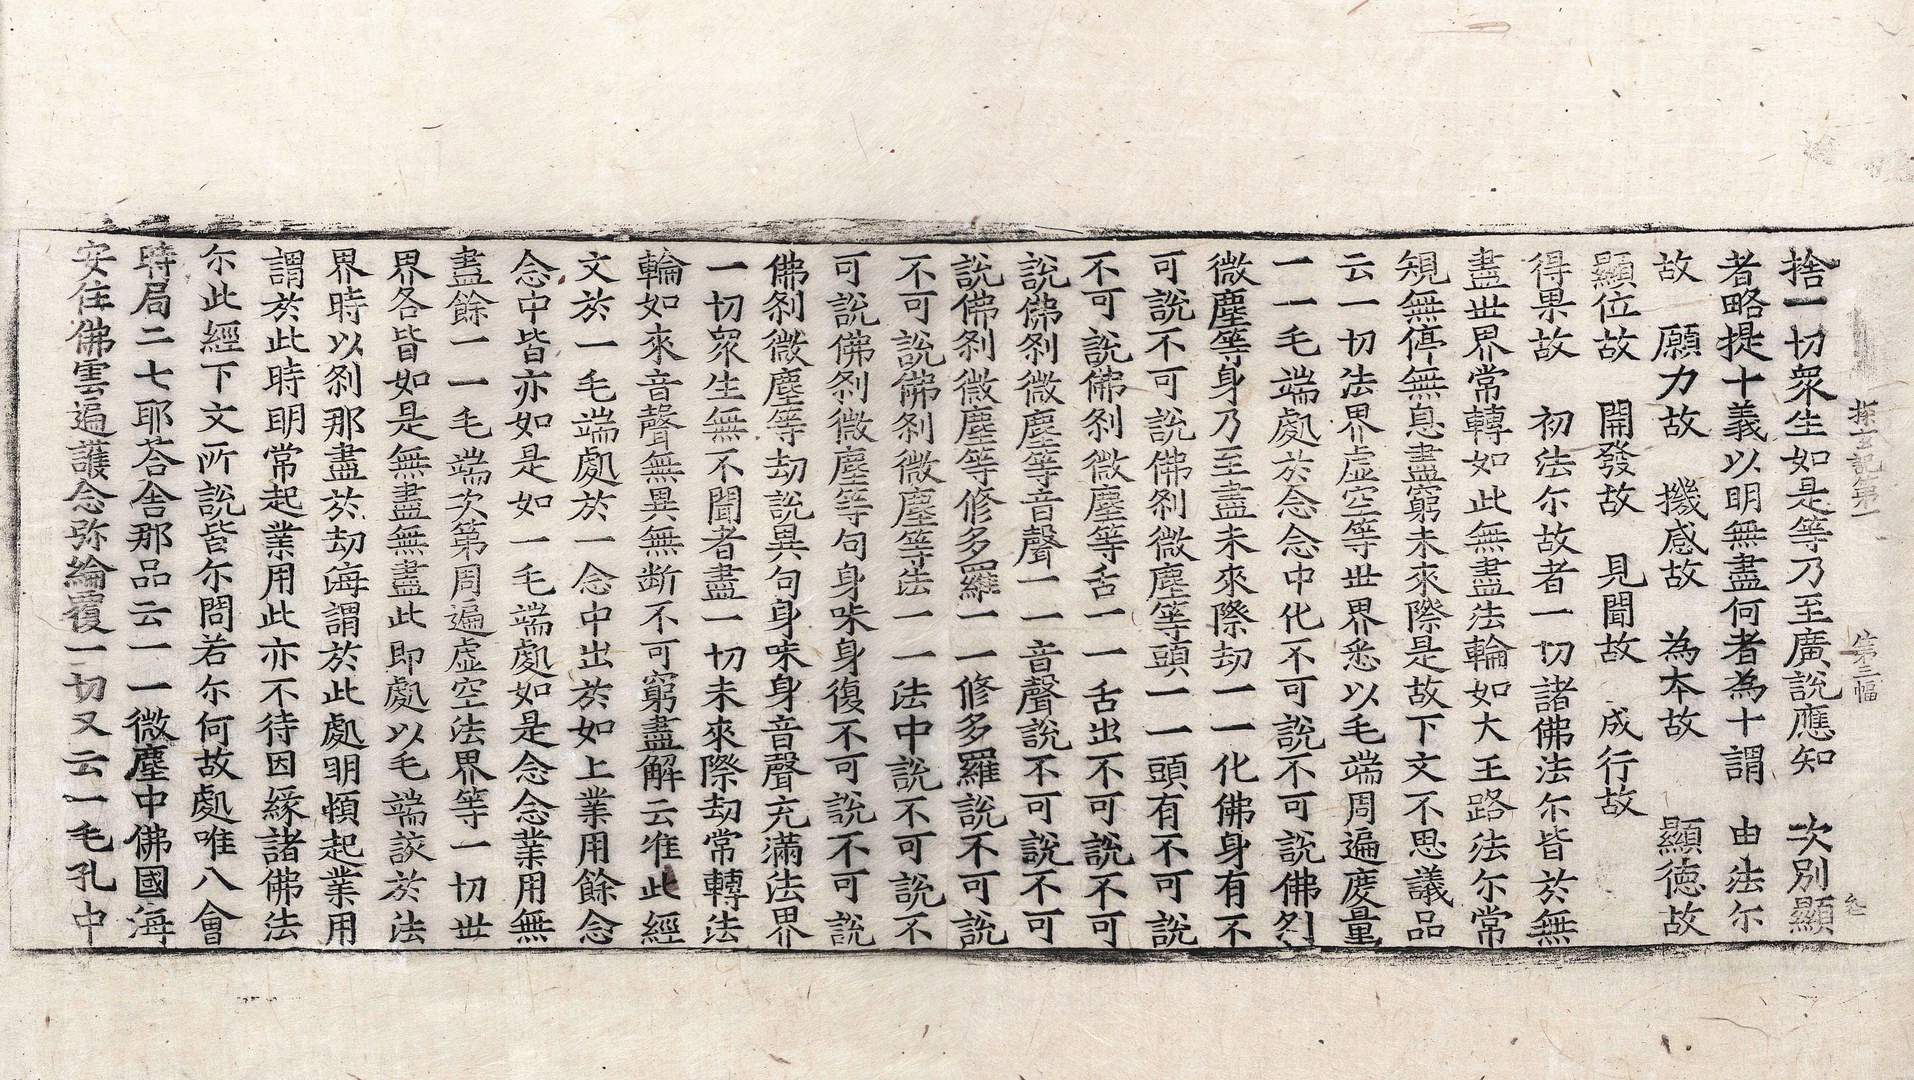 探玄記第一　第三幅　叅
捨一切衆生如是等乃至廣説應知　次別顯
者略提十義以明無盡何者為十謂　由法尒
故　願力故　機感故　為本故　顯徳故
顯位故　開發故　見聞故　成行故
得果故　初法尒故者一切諸佛法尒皆於無
盡世界常轉如此無盡法輪如大王路法尒常
規無停無息盡窮未來際是故下文不思議品
云一切法界虛空等世界悉以毛端周遍度量
一一毛端處於念念中化不可説不可説佛刹
微塵等身乃至盡未來際劫一一化佛身有不
可説不可説佛刹微塵等頭一一頭有不可説
不可説佛刹微塵等舌一一舌出不可説不可
説佛刹微塵等音聲一一音聲説不可説不可
説佛刹微塵等修多羅一一修多羅説不可説
不可説佛刹微塵等法一一法中説不可説不
可説佛刹微塵等句身味身復不可説不可説
佛刹微塵等劫説異句身味身音聲充滿法界
一切衆生無不聞者盡一切未來際劫常轉法
輪如來音聲無異無断不可窮盡解云准此經
文於一毛端處於一念中出於如上業用餘念
念中皆亦如是如一毛端處如是念念業用無
盡餘一一毛端次第周遍虛空法界等一切世
界各皆如是無盡無盡此即處以毛端該於法
界時以刹那盡於劫海謂於此處明頓起業用
謂於此時明常起業用此亦不待因緣諸佛法
尒此經下文所説皆尒問若尒何故處唯八會
時局二七耶荅舍那品云一一微塵中佛國海
安住佛雲遍護念弥綸覆一切又云一毛孔中